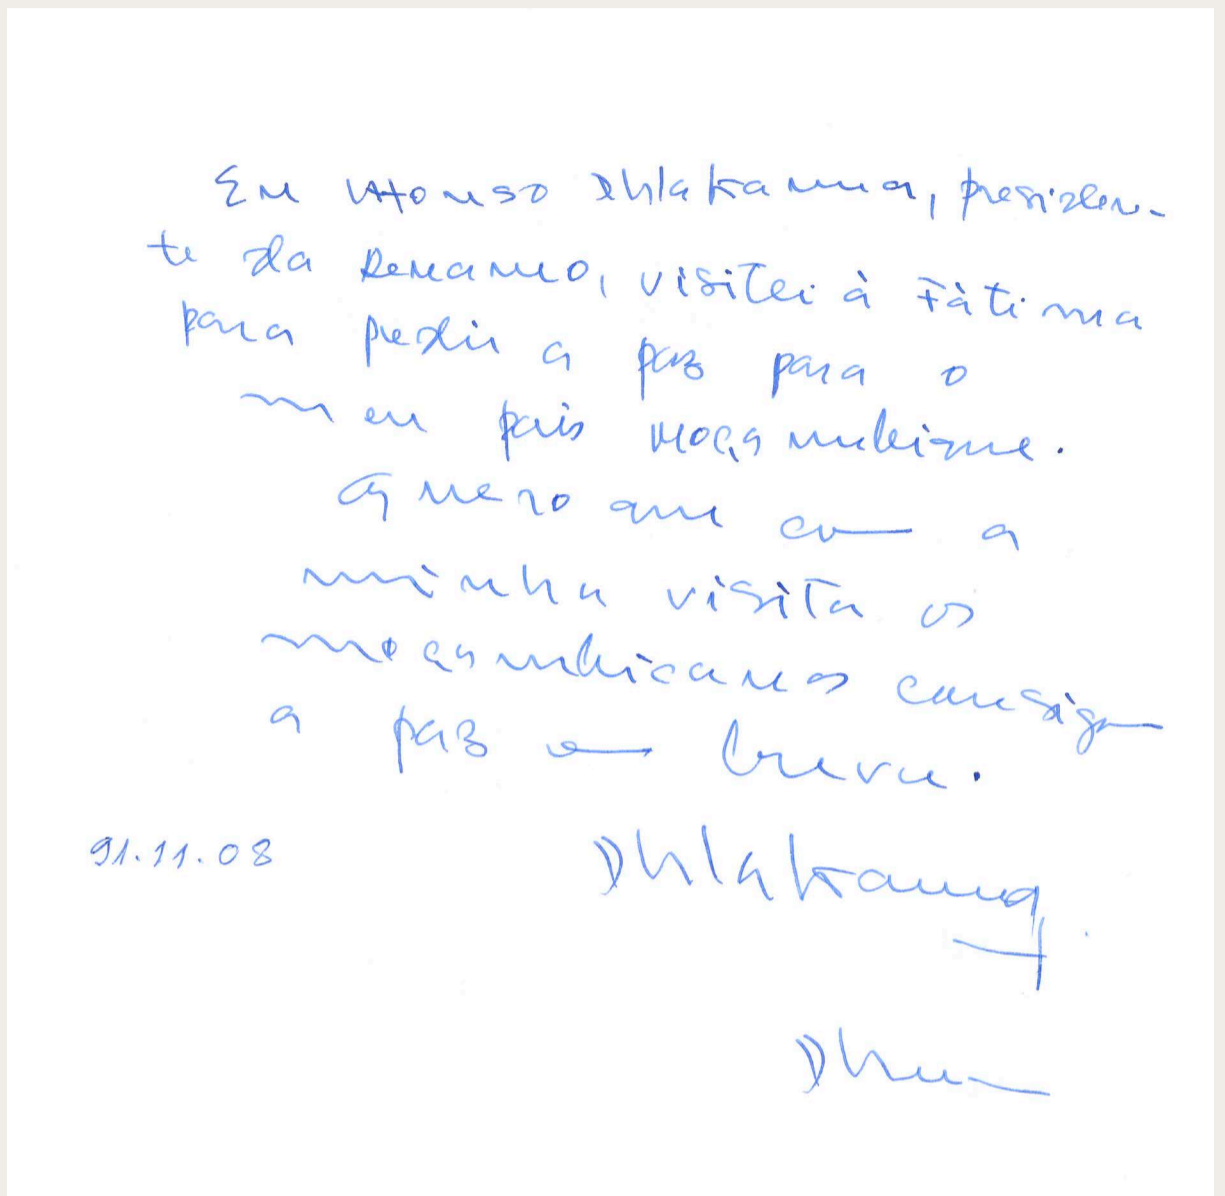 Eu Afonso Dhlakama, presiden-
te da Renamo, visitei à Fàtima
para pedir a paz para o
meu pais moçambique.
Quero que com a
minha visita os
moçambicanos consigam
a paz em breve.
91.11.08
Dhlakama